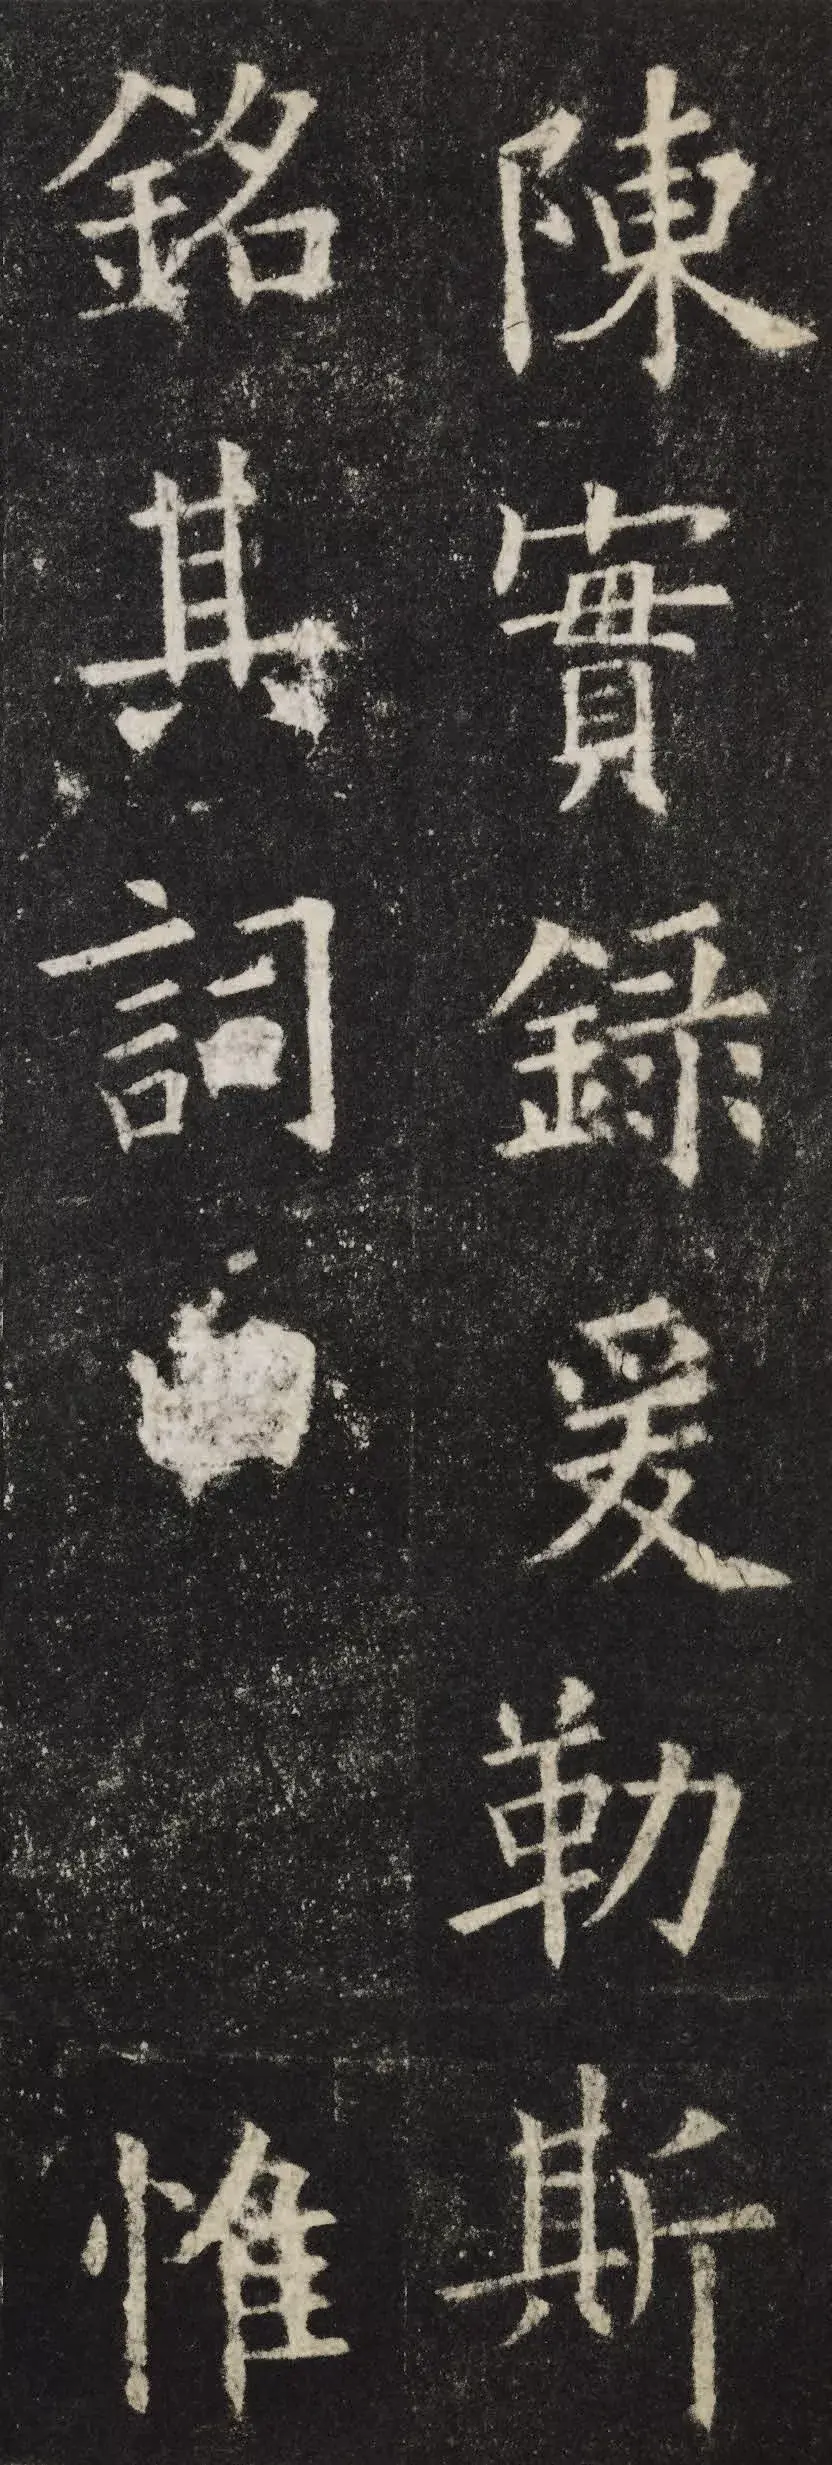 陳實錄爰勒斯
銘其詞惟